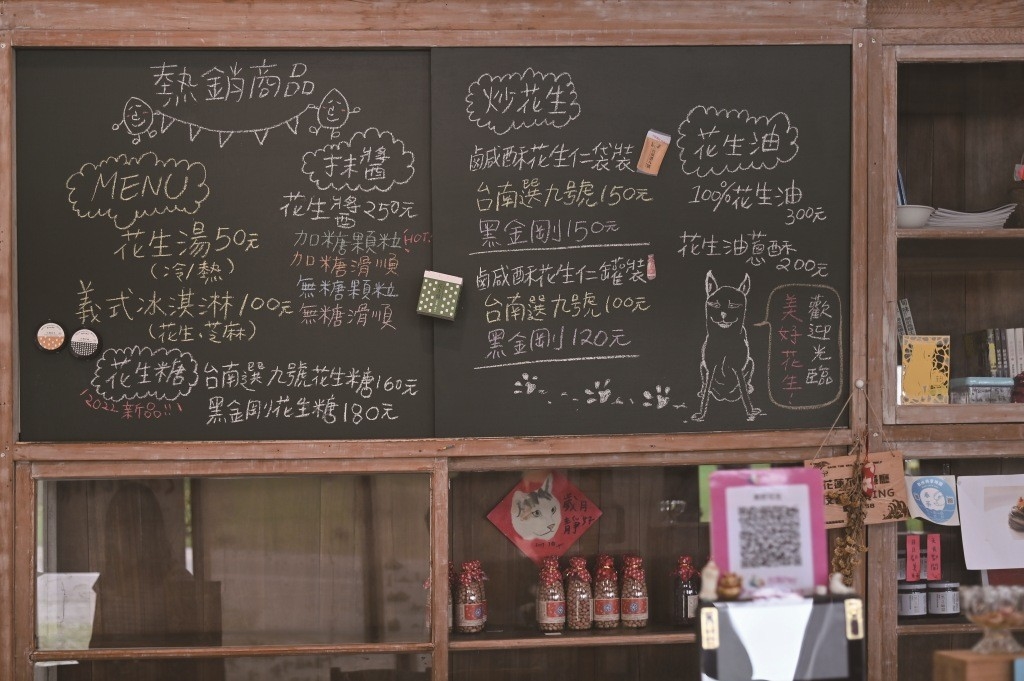 熱銷商品
MENU
花生湯50元
(冷/熱)
義式冰淇淋100元
(花生.芝麻)
花生糖
2022新品!!
台南選九號花生糖160元
黑金剛花生糖180元
抹醬
花生醬250元
加糖顆粒HOT
加糖滑順
無糖顆粒
無糖滑順
炒花生
鹹酥花生仁袋裝
台南選九號150元
黑金剛150元
鹹酥花生仁罐裝
台南選九號100元
黑金剛120元
花生油
100%花生油
300元
花生油蔥酥
200元
歡迎光臨
美好花生!